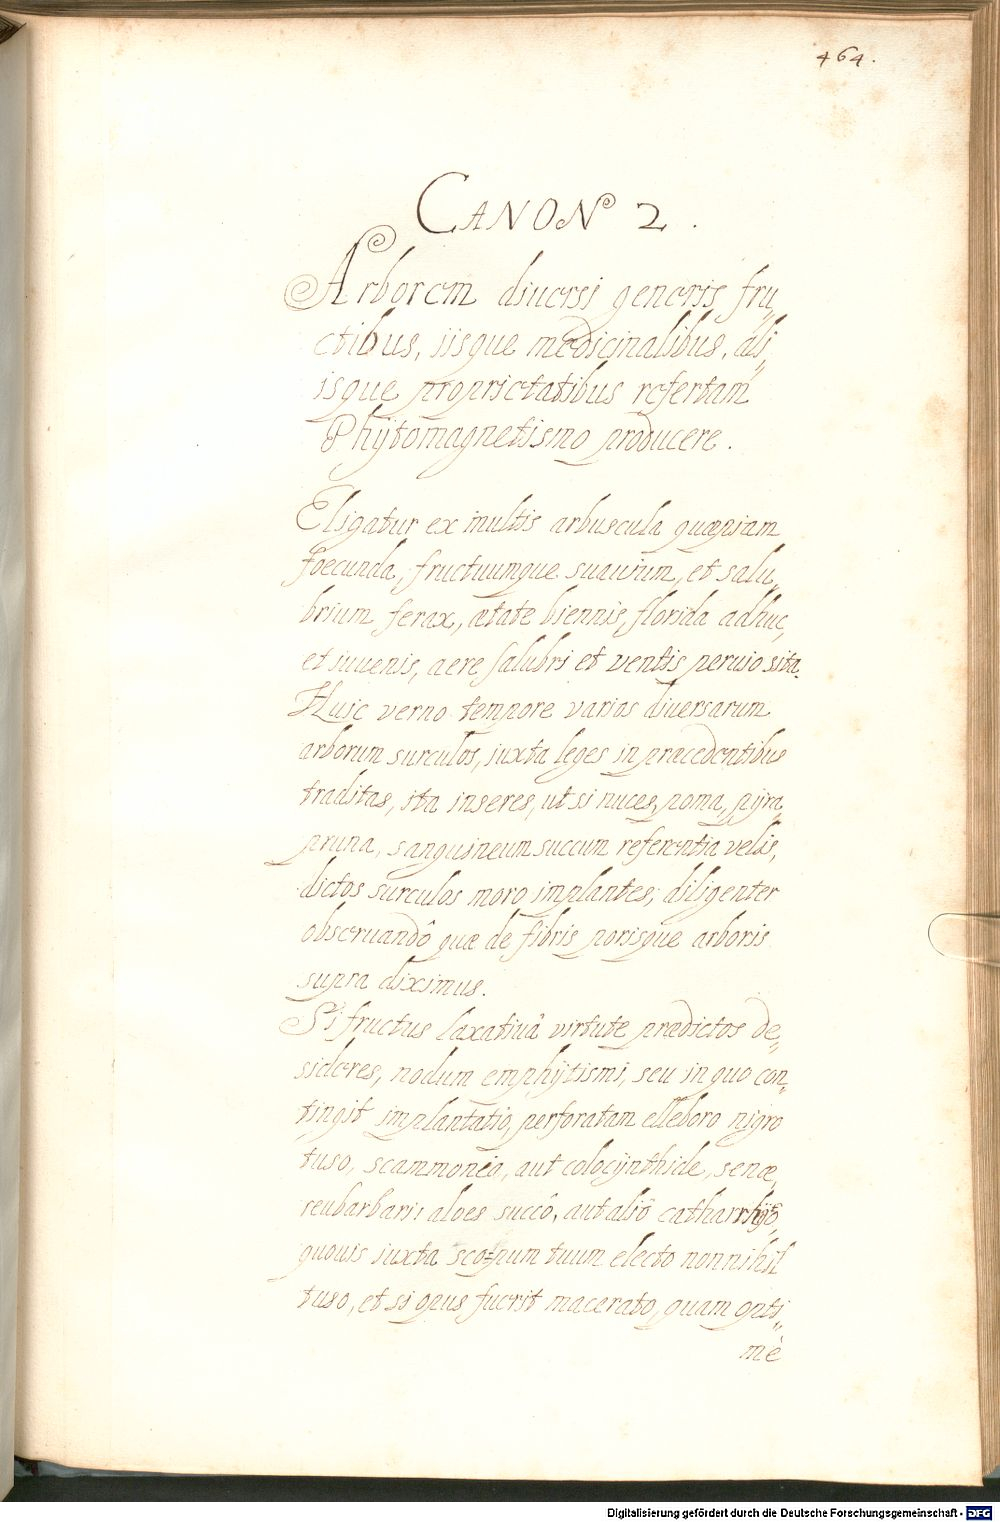 464.
CANON 2.
Arborem diuersi generis fru„
ctibus, iisque medicinalibus, ali„
isque proprietatibus refertam
Phÿtomagnetismo producere.
Eligatur ex multis arbuscula quæpiam
foecunda, fructuumque suauium, et salu„
brium ferax, ætate biennis, florida adhuc,
et iuuenis, aere salubri et ventis peruio sita.
Huic verno tempore varios diuersarum
arborum surculos, iuxta leges in præcedentibus
traditas, ita inseres, ut si nuces, poma, pÿra,
pruna, sanguineum succum referentia velis,
dictos surculos moro implantes, diligenter
obseruandô quæ de fibris porisque arboris
supra diximus.
Si fructus laxatiuâ virtute prædictos de„
sideres, nodum emphÿtismi, seu in quo con„
tingit implantatio, perforatam elleboro nigro
tuso, scammonea, aut colocÿnthide, senæ,
reubarbari, aloes succô, aut aliô
quouis iuxta scopum tuum electo nonnihil
tuso, et si opus fuerit macerato, quam opti„
mè
Digitalisierung gefördert durch die Deutsche Forschungsgemeinschaft - DFG